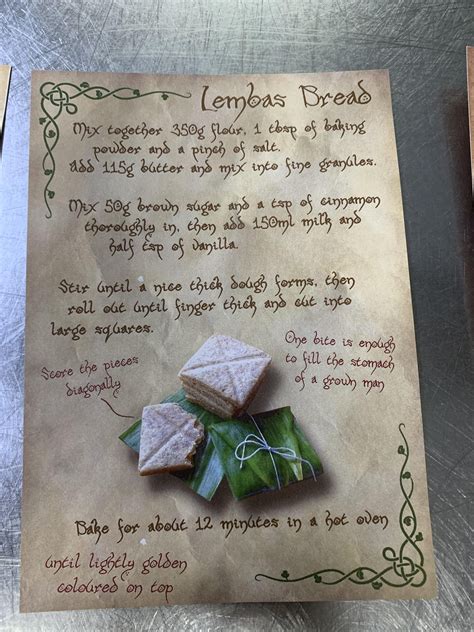 Lembas Bread
Mix together 350g flour, 1 tbsp of baking
powder and a pinch of salt.
Add 115g butter and mix into fine granules.
Mix 50g brown sugar and a tsp of cinnamon
thoroughly in, then add 150ml milk and
half tsp of vanilla.
Stir until a nice thick dough forms, then
roll out until finger thick and cut into
large squares.
Score the pieces
diagonally
One bite is enough
to fill the stomach
of a grown man
Bake for about 12 minutes in a hot oven
until lightly golden
coloured on top